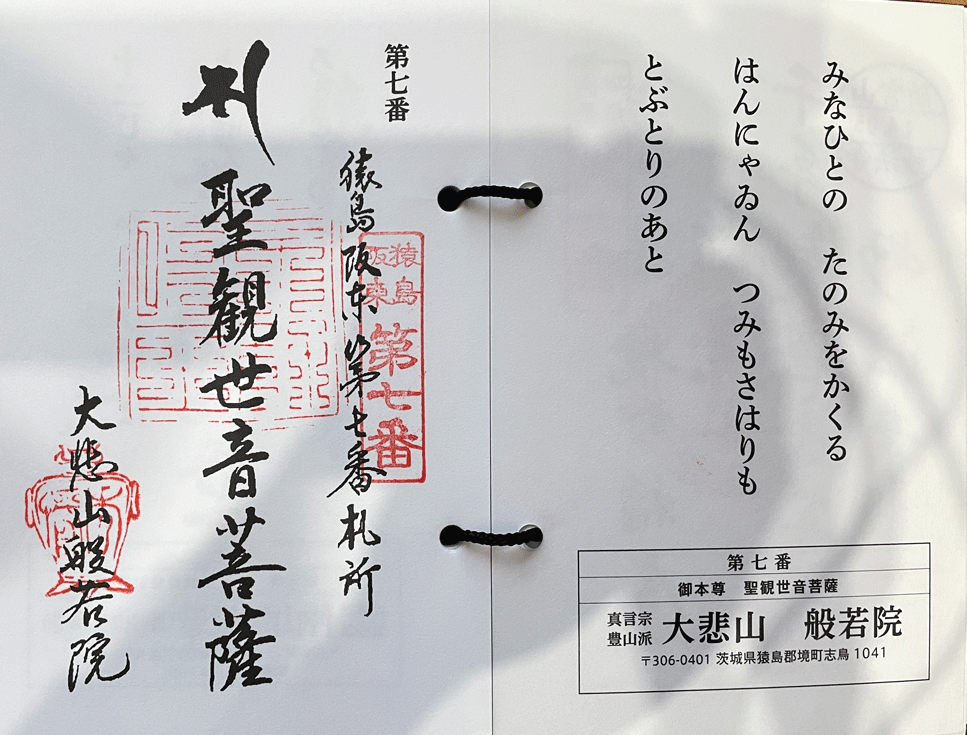 みなひとの　たのみをかくる
はんにゃゐん　つみもさはりも
とぶとりのあと
第七番
御本尊　聖観世音菩薩
真言宗
豊山派
大悲山　般若院
〒306-0401 茨城県猿島郡境町志鳥 1041
第七番
猿島阪东第七番札所
猿島
阪東
第七番
聖觀世音菩薩
大悲山般若院